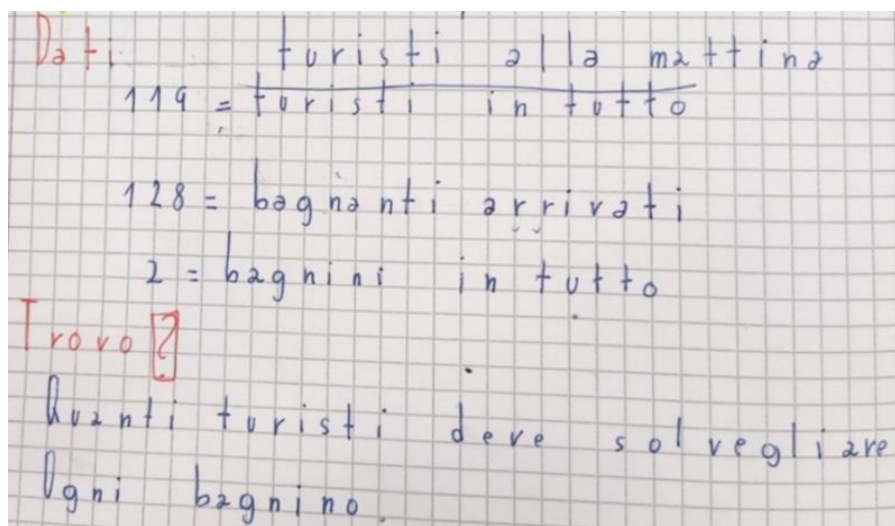 Dati turisti alla mattina
119 = turisti in tutto
128 = bagnanti arrivati
2 = bagnini in tutto
Trovo ?
Quanti turisti deve solvegliare
Ogni bagnino.